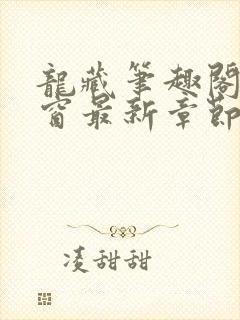 龍藏筆趣閣
窗最新章節
凌甜甜